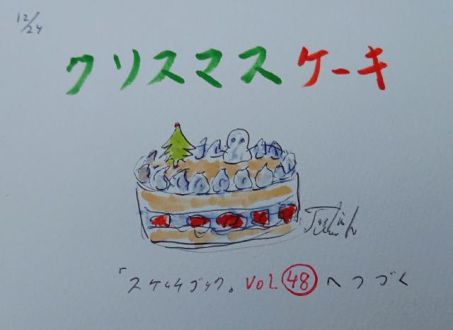 12/24
クリスマスケーキ
「スケッチブック。vol.48へつづく